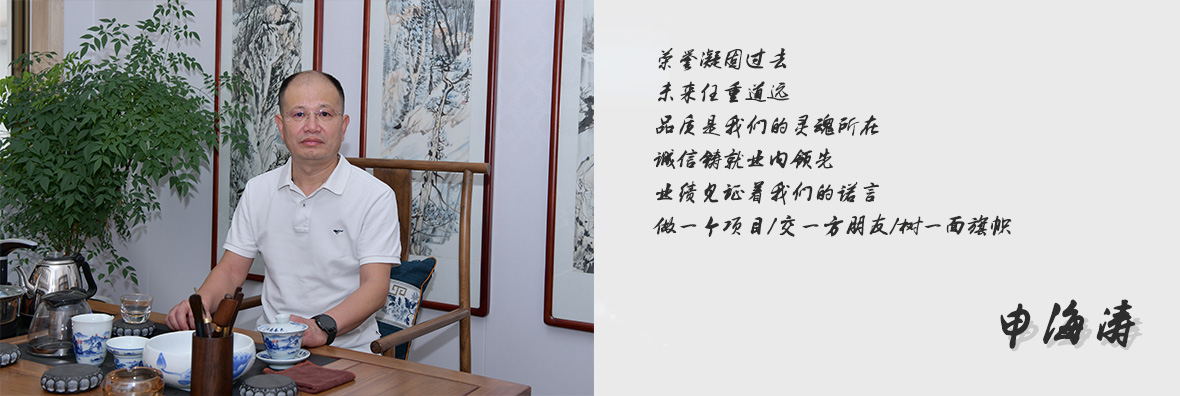 荣誉凝固过去
未来任重道远
品质是我们的灵魂所在
诚信铸就业内领先
业绩见证着我们的诺言
做一个项目/交一方朋友/树一面旗帜
申海涛